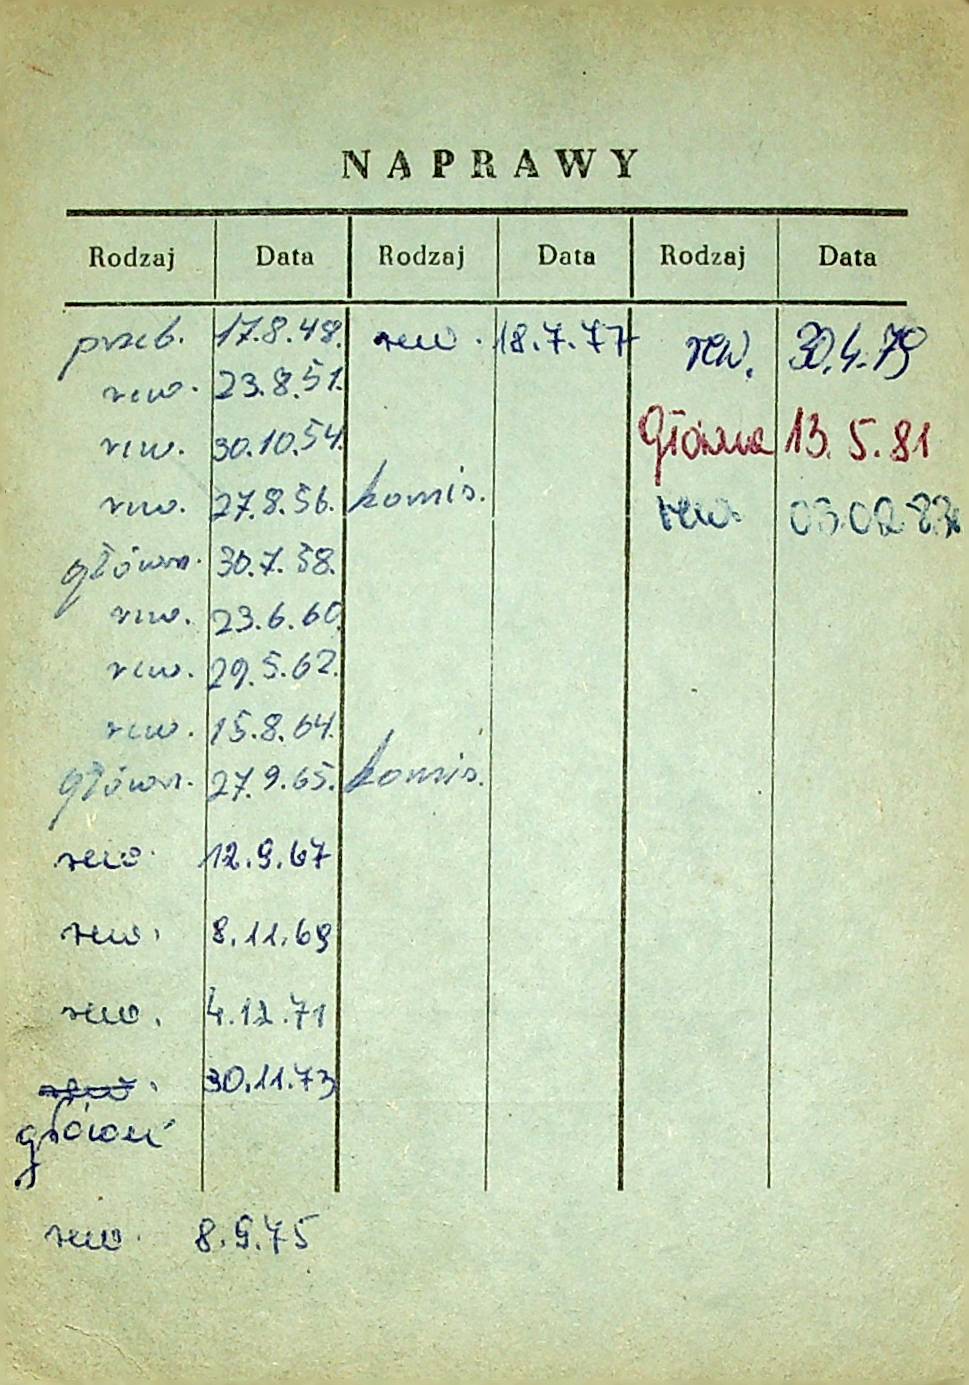 NAPRAWY
Rodzaj Data Rodzaj Data Rodzaj Data
przeb. 17.8.48. rew. 18.7.77 rew. 30.4.79
rew. 23.8.51.
rew. 30.10.54. Główna 13.5.81
rew. 27.8.56. komis. rew. 03.02.83
główn. 30.7.58.
rew. 23.6.60.
rew. 29.5.62.
rew. 15.8.64.
główn. 27.9.65. komis.
rew. 12.9.67
rew. 8.11.69
rew. 4.12.71
rew. 30.11.73
główn
rew. 8.9.75